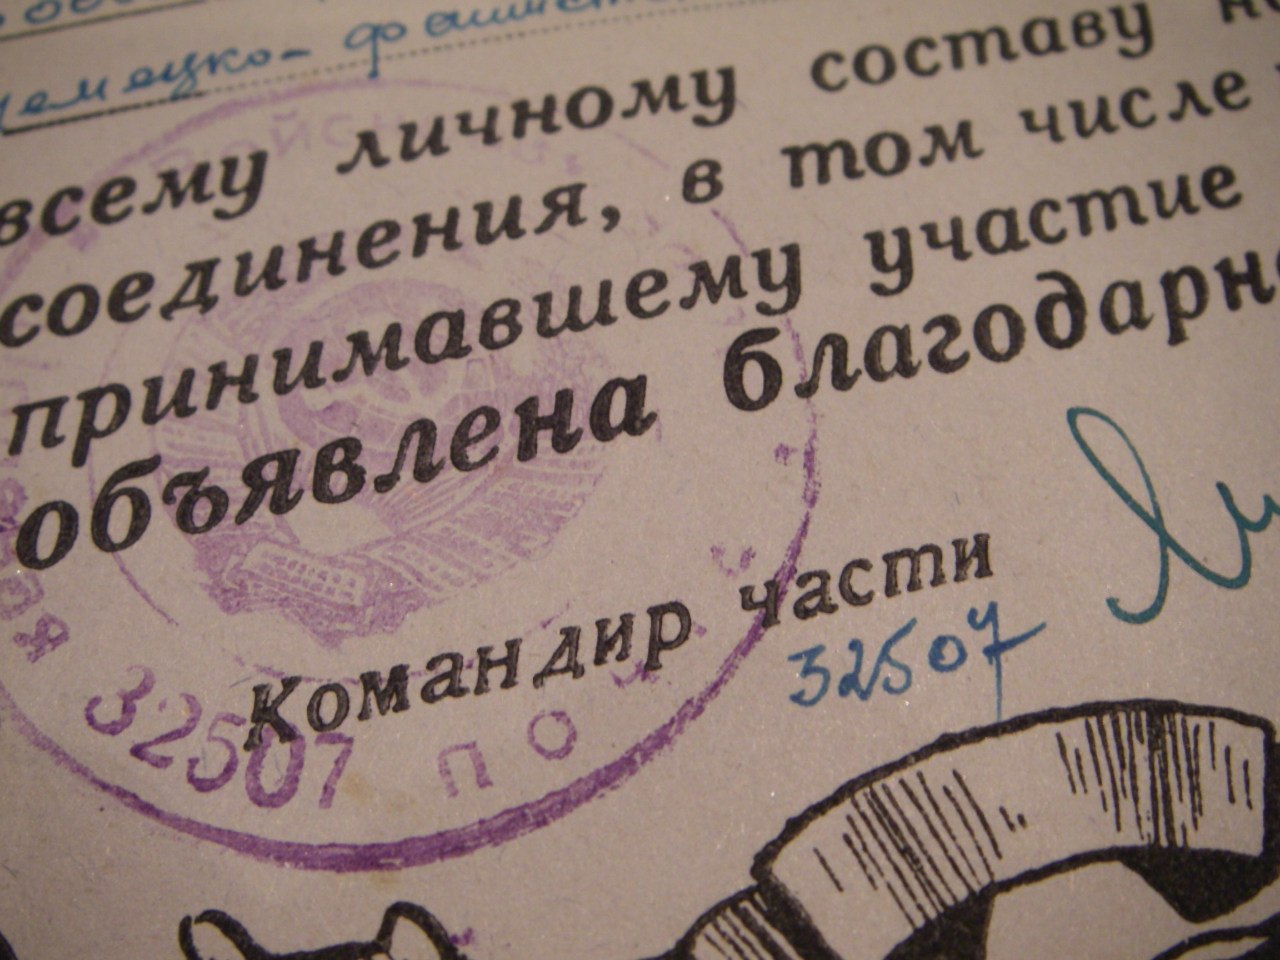 немецко-
всему личному составу
соединения, в том числе
принимавшему участие
объявлена благодарн
Командир части
32507
32507 ПО